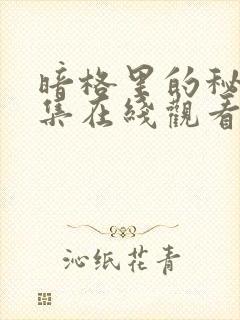 暗格里的秘
集在綫觀看
沁纸花青